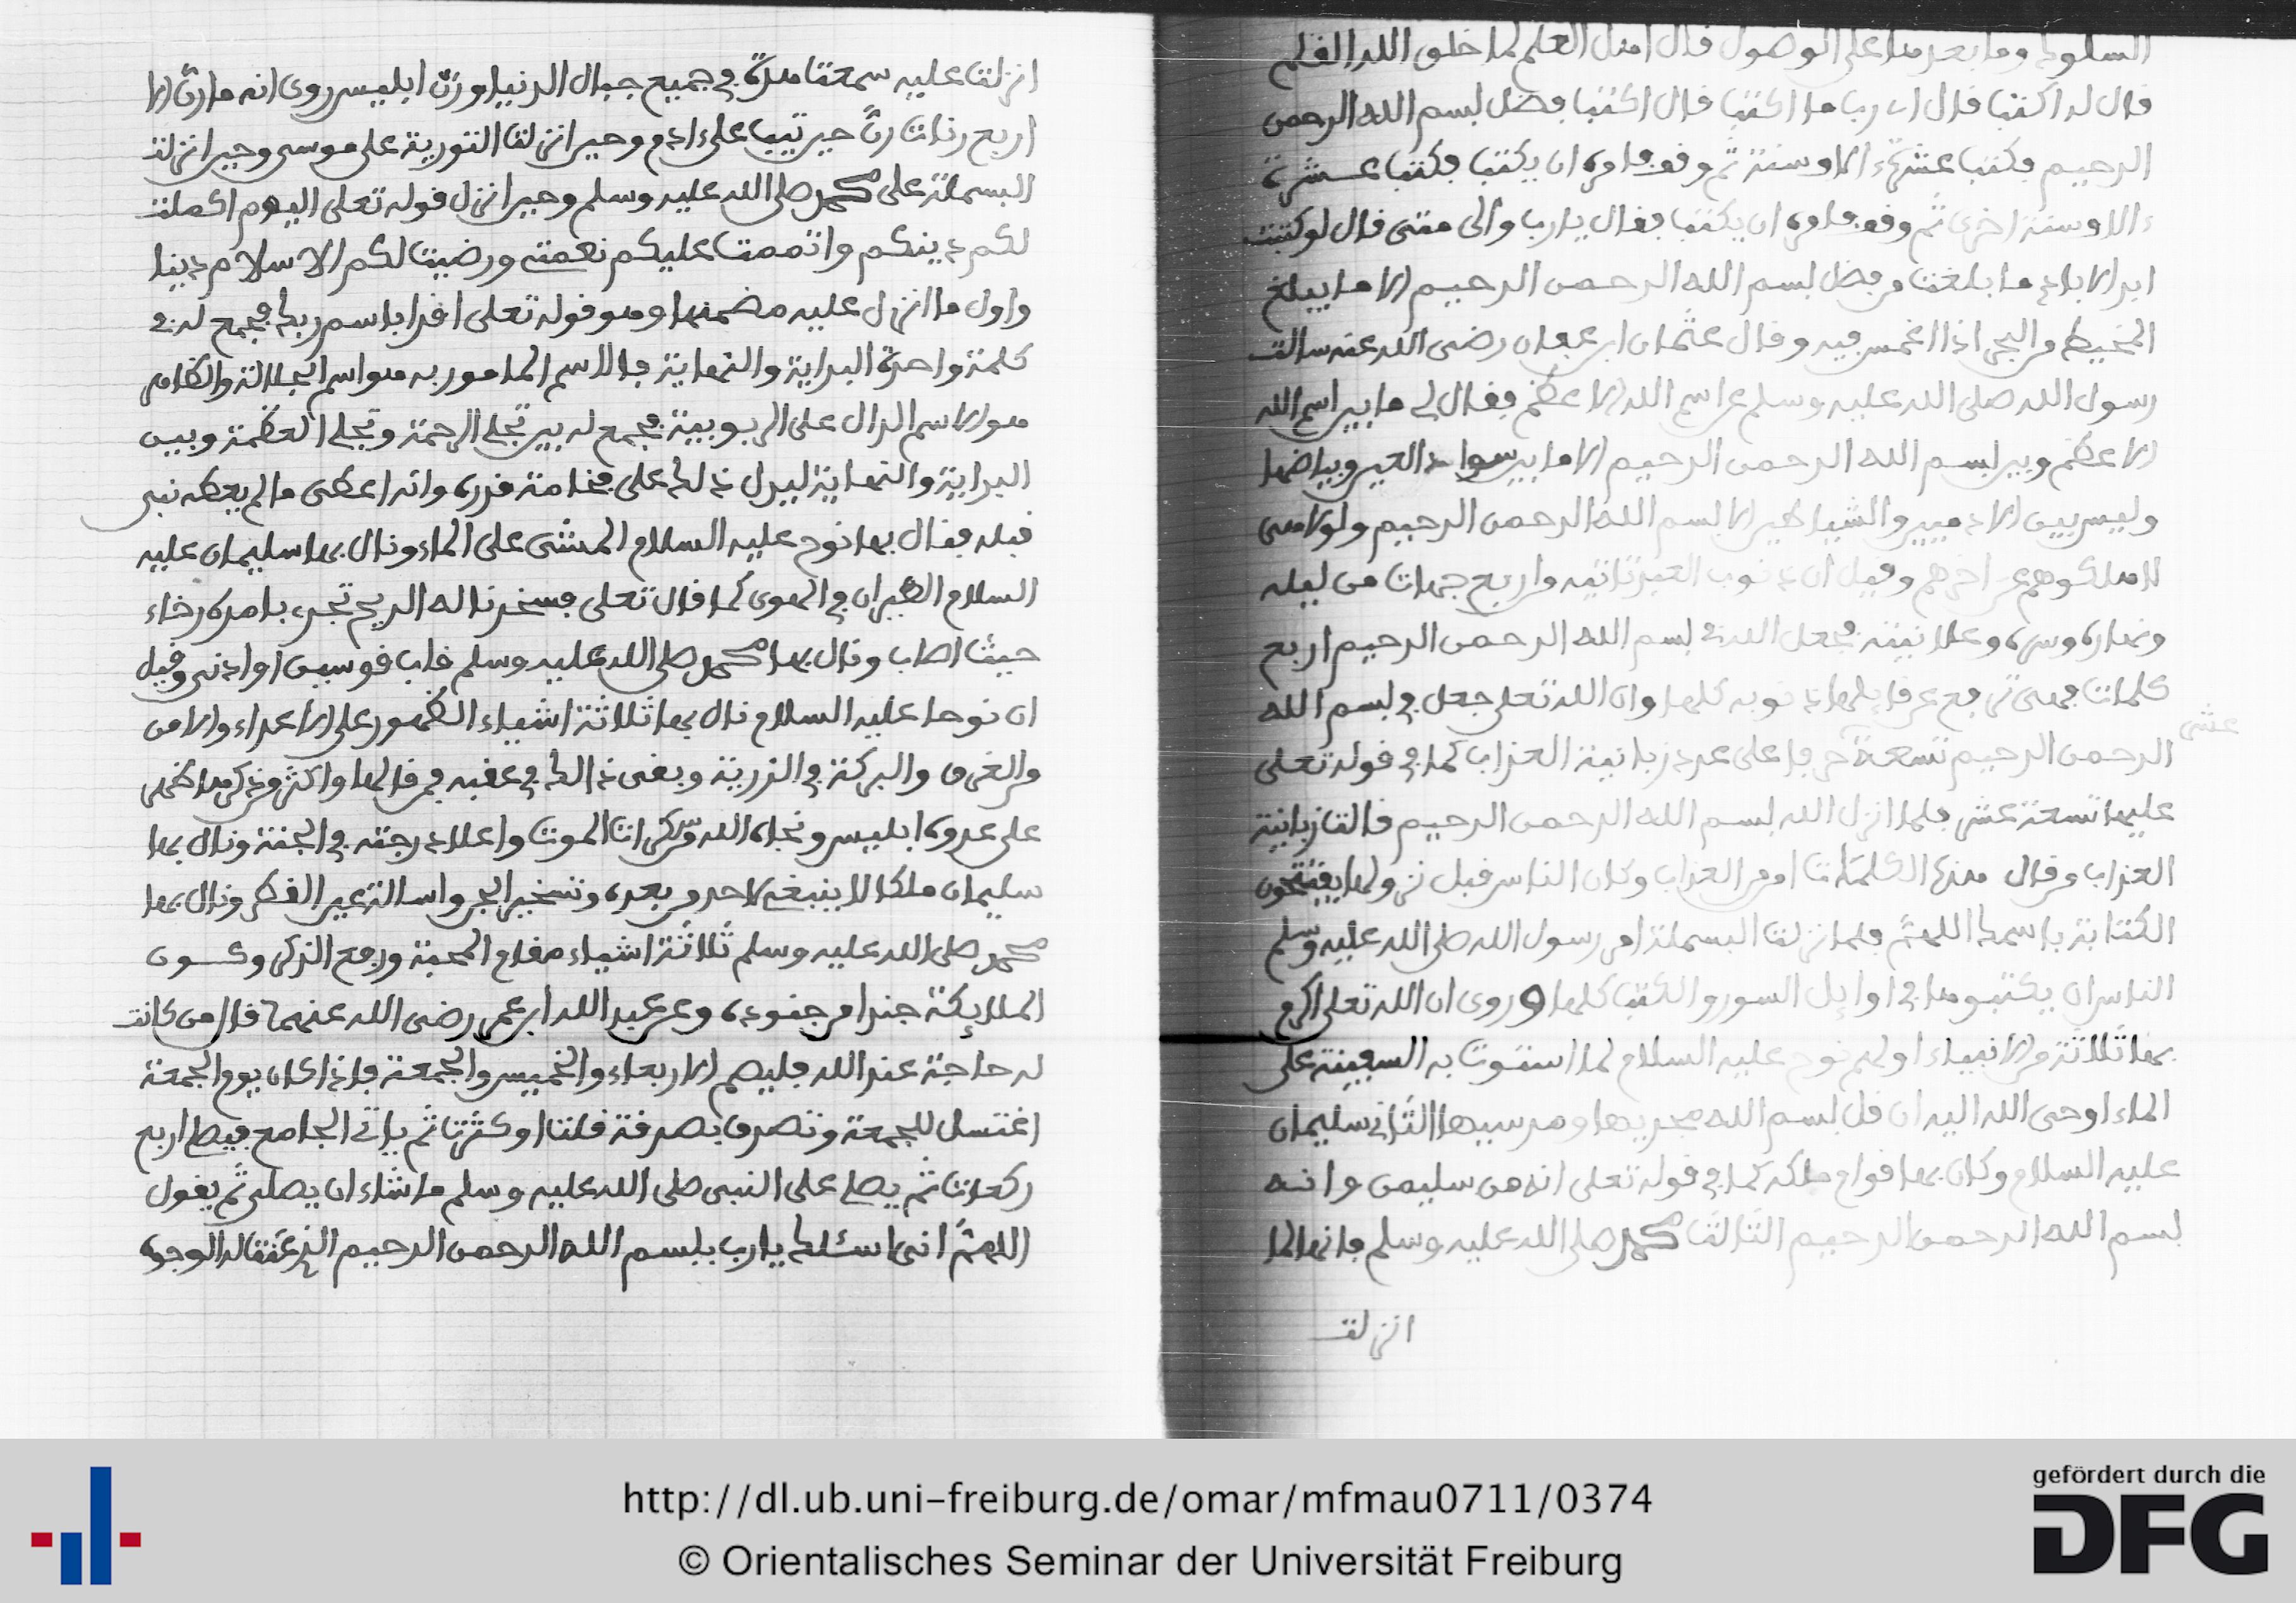 السلوك وما بعدها على الوصول قال اهل العلم لما خلق الله القلم
قال له اكتب قال اى رب ما اكتب قال اكتب فضل بسم الله الرحمن
الرحيم فكتب عشرة ءالاف سنة ثم وقف فامره ان يكتب فكتب عشرة
ءالاف سنة اخرى ثم وقف فامره ان يكتب فقال يارب والى متى قال لو كتبت
ابد الاباد ما بلغت من فضل بسم الله الرحمن الرحيم الا ما يبلغ
المخيط من البحر اذا اغمس فيه وقال عثمان ابن عفان رضى الله عنه سالت
رسول الله صلى الله عليه وسلم عن اسم الله الاعظم فقال لى ما بين اسم الله
الاعظم وبين بسم الله الرحمن الرحيم الا ما بين سواد العين وبياضها
وليس بين الادميين والشياطين الا بسم الله الرحمن الرحيم ولولا هى
لاهلكوهم عن اخرهم وقيل ان ذنوب العبد تاتيه من اربع جهات من ليله
ونهاره وسره وعلانيته فجعل الله فى بسم الله الرحمن الرحيم اربع
كلمات فهى ترفع عن قايلها ذنوبه كلها وان الله تعلى جعل فى بسم الله
الرحمن الرحيم تسعة حرفا على عدد زبانية العذاب كما فى قوله تعلى
عشر
عليها تسعة عشر فلما انزل الله بسم الله الرحمن الرحيم قالت زبانية
العذاب من قال هذه الكلمات امن من العذاب وكان الناس قبل نزولها يفتتحون
الكتابة باسمك اللهم فلما نزلت البسملة امر رسول الله صلى الله عليه وسلم
الناس ان يكتبوها فى اوايل السور والكتب كلها وروى ان الله تعلى اكرم
بها ثلاثة من الانبياء اولهم نوح عليه السلام لما استوت به السفينة على
الماء اوحى الله اليه ان قل بسم الله مجريها ومرسيها الثانى سليمان
عليه السلام وكان بها قوام ملكه كما فى قوله تعلى انه من سليمن وانه
بسم الله الرحمن الرحيم الثالث محمد صلى الله عليه وسلم فانها لما
انزلت
انزلت عليه سمعت هدة فى جميع جبال الدنيا ورن ابليس روى انه ما رن الا
اربع رنات رن حين تيب على ءادم وحين انزلت التورية على موسى وحين انزلت
البسملة على محمد صلى الله عليه وسلم وحين انزل قوله تعلى اليوم اكملت
لكم دينكم واتممت عليكم نعمتى ورضيت لكم الاسلام دينا
واول ما انزل عليه مضمنها وهو قوله تعلى اقرا باسم ربك فجمع له فى
كلمة واحدة البداية والنهاية فالاسم المامور به هو اسم الجلالة والظاهر
هو الاسم الدال على الربوبية فجمع له بين تجلى الرحمة وتجلى العظمة وبين
البداية والنهاية ليدل ذلك على فخامة قدره وانه اعطى ما لم يعطه نبى
قبله فقال بها نوح عليه السلام المشى على الماء ونال بها سليمان عليه
السلام الطيران فى الهوى كما قال تعلى فسخرنا له الريح تجرى بامره رخاء
حيث اصاب ونال بها محمد صلى الله عليه وسلم قاب قوسين او ادنى وقيل
ان نوحا عليه السلام نال بها ثلاثة اشياء الظهور على الاعداء والامن
من الغرق والبركة فى الذرية وبقى ذلك فى عقبه فمن قالها واكثر من ذكرها ظهر
على عدوه ابليس ونجاه الله من سكرات الموت واعلا درجته فى الجنة ونال بها
سليمان ملكا لا ينبغى لاحد من بعده وتسخير الجن واسالة عين القطر ونال بها
محمد صلى الله عليه وسلم ثلاثة اشياء مقام المحبة ورفع الذكر وكون
الملايكة جندا من جنوده وعن عبد الله ابن عمر رضى الله عنهما قال من كانت
له حاجة عند الله فليصم الاربعاء والخميس والجمعة فاذا كان يوم الجمعة
اغتسل للجمعة وتصدق بصدقة قلت او كثرت ثم ياتى الجامع فيصلى اربع
ركعات ثم يصلى على النبى صلى الله عليه وسلم ما شاء ان يصلى ثم يقول
اللهم انى اسئلك يارب ببسم الله الرحمن الرحيم الذى عنت له الوجوه
http://dl.ub.uni-freiburg.de/omar/mfmau0711/0374
© Orientalisches Seminar der Universität Freiburg
gefördert durch die
DFG